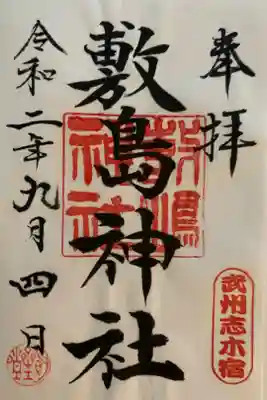 奉拝
敷島神社
敷嶋神社
武州志木宿
令和二年九月四日